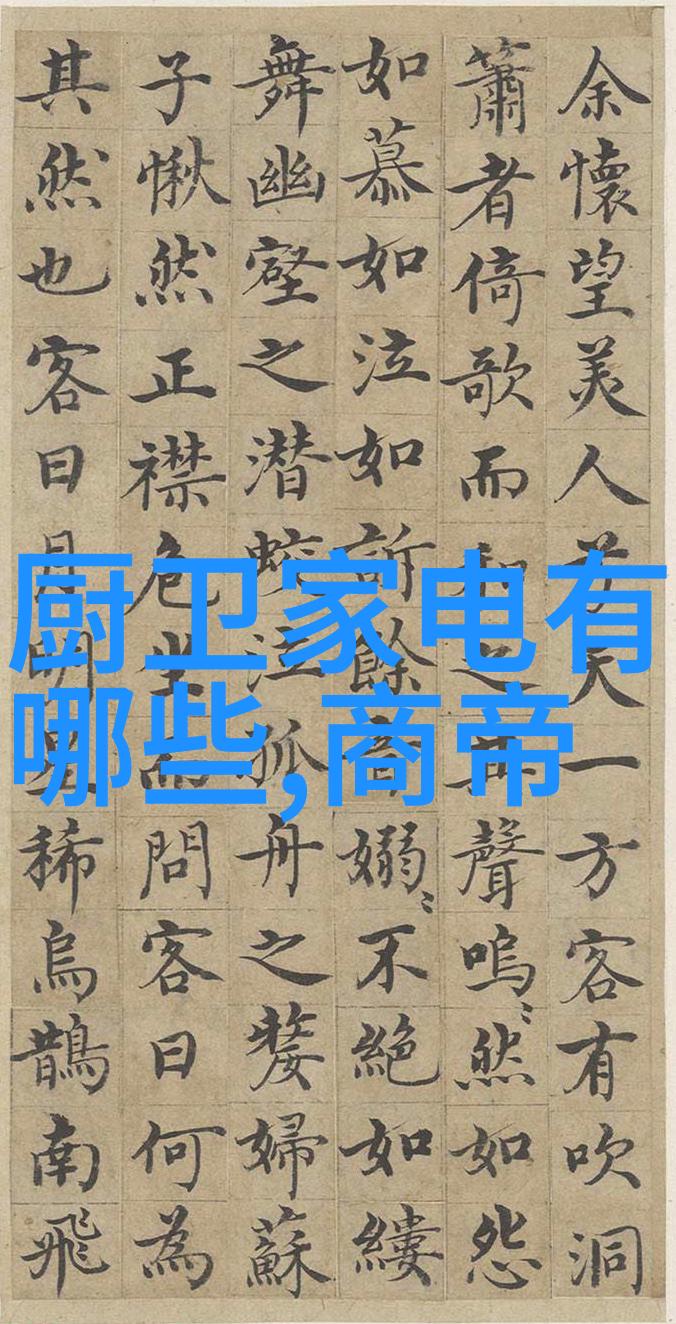 余懷望美人兮天一方客有吹洞
簫者倚歌而和之其聲嗚〻然如怨
如慕如泣如訴餘音嫋〻不絕如縷
舞幽壑之潜蛟泣孤舟之嫠婦蘇
子愀然正襟危坐而問客曰何為
其然也客曰月明星稀烏鵲南飛
厨卫家电有
哪些,商帝